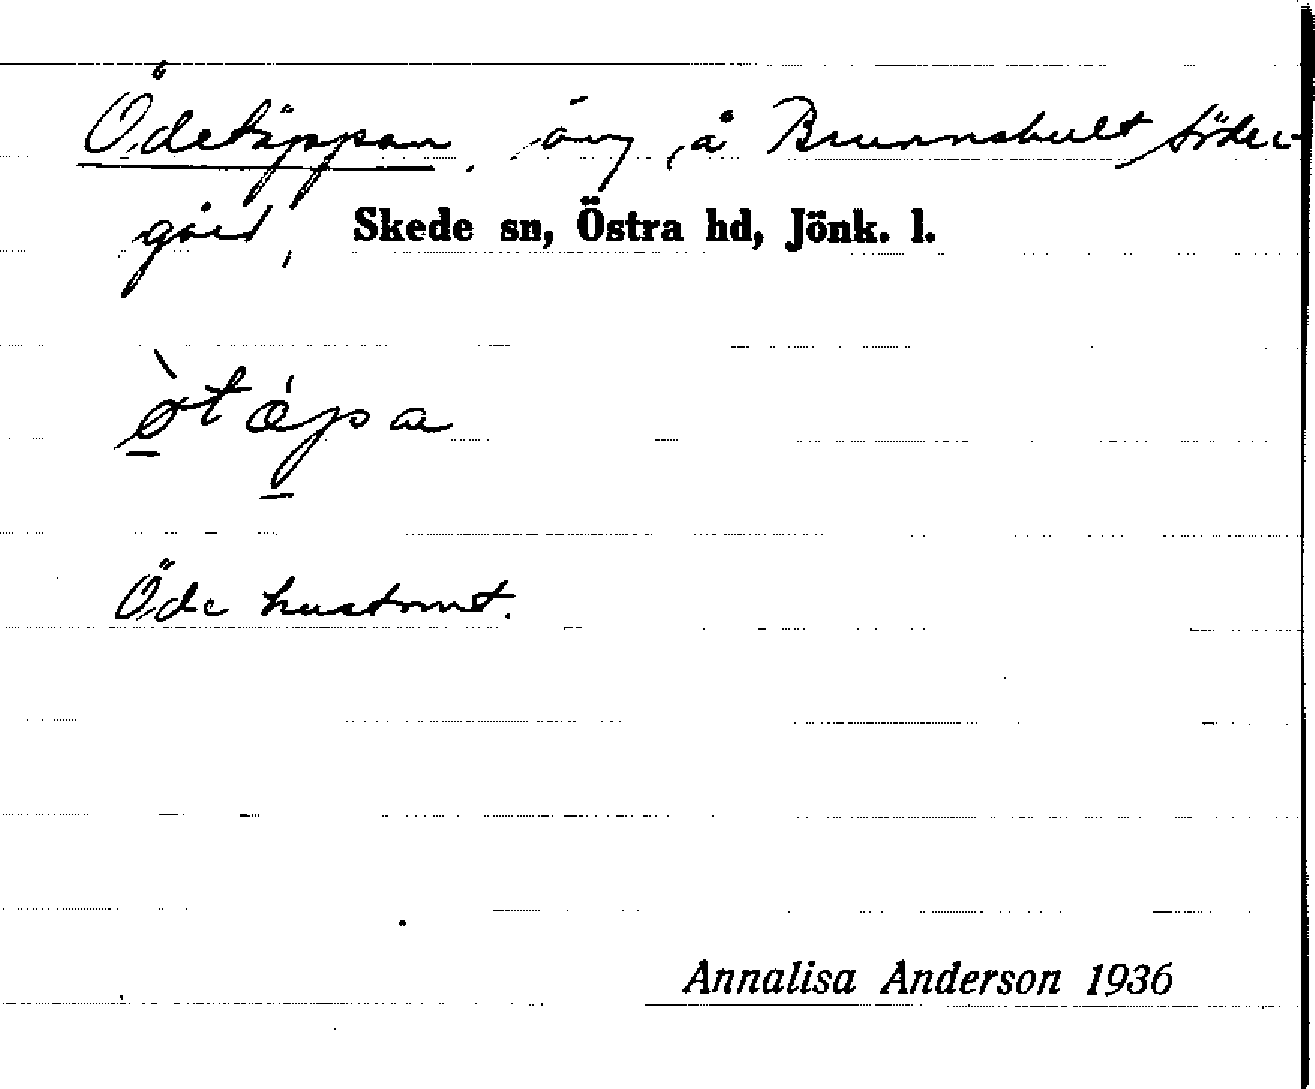 Ödetäppan, äng, å Brunnshult söder
gård, Skede sn, Östra hd, Jönk. l.
Öde hustomt.
Annalisa Anderson 1936